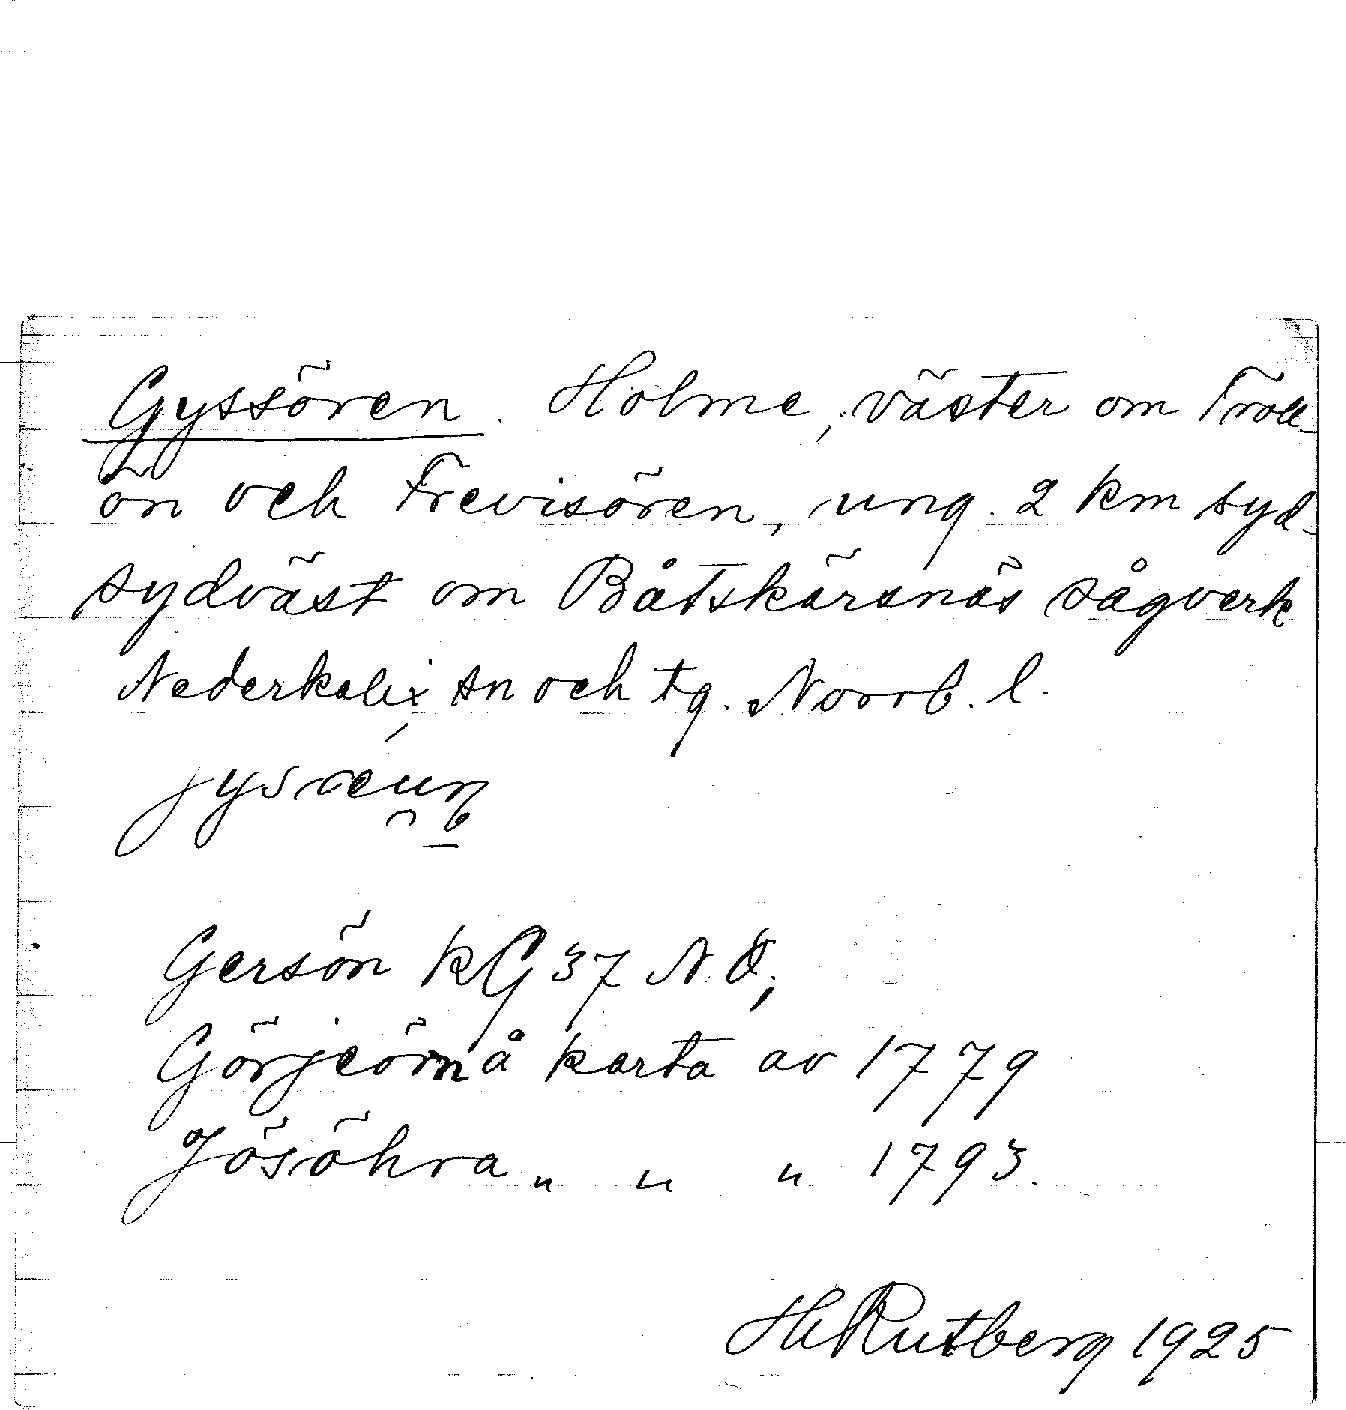 Gyssören. Holme, väster om Troll-
ön och Frevisören, ung. 2 km syd-
sydväst om Båtskärsnäs sågverk
Nederkalix sn och tg. Norrb. l.
Gersön kG 37 N.Ö;
Görjeörn å karta av 1779
Jösöhra „ „ „ 1793.
H Rutberg 1925